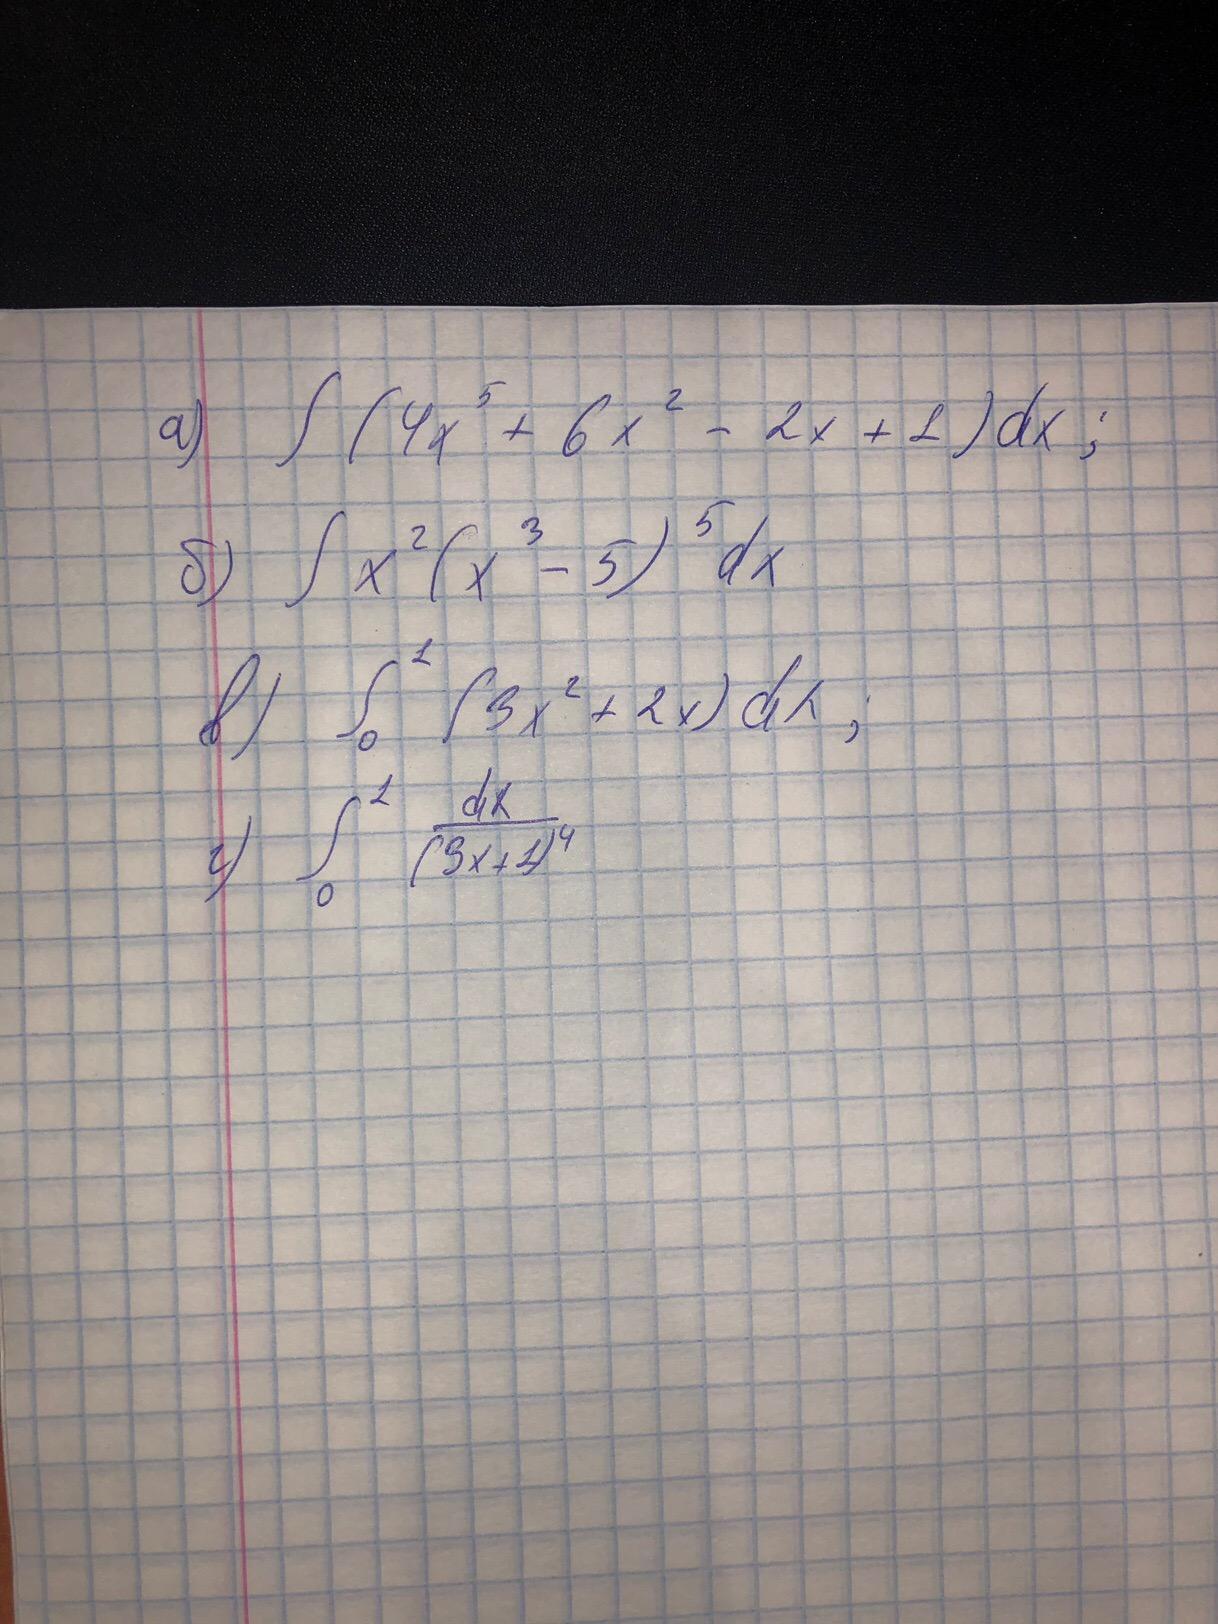 а) ∫ (4x⁵ + 6x² - 2x + 1) dx ;
б) ∫ x² (x³ - 5)⁵ dx
в) ∫₀¹ (3x² + 2x) dx ;
г) ∫₀¹ dx / (3x + 1)⁴